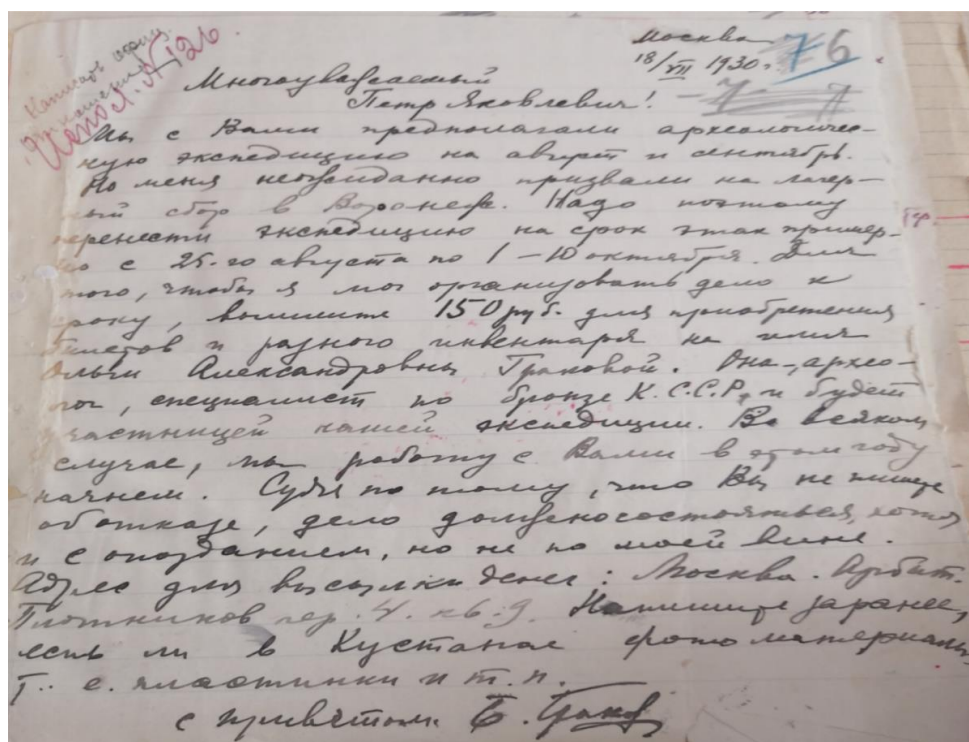 Москва 76
18/VII 1930 г.
Написать офиц.
Испол. №126
Многоуважаемый
Петр Яковлевич!
Мы с Вами предполагали археологичес-
кую экспедицию на август и сентябрь.
Но меня неожиданно призвали на лагер-
ный сбор в Воронеж. Надо поэтому
перенести экспедицию на срок этак пример-
но с 25-го августа по 1–10 октября. Для
того, чтобы я мог организовать дело к
сроку, вышлите 150 руб. для приобретения
билетов и разного инвентаря на имя
Ольги Александровны Граковой. Она, архео-
лог, специалист по бронзе К.С.С.Р., и будет
участницей нашей экспедиции. Во всяком
случае, мы работу с Вами в этом году
начнем. Судя по тому, что Вы не пишете
об отказе, дело должно состояться, хотя
и с опозданием, но не по моей вине.
Адрес для высылки денег: Москва. Арбат.
Плотников пер. 4. кв. 9. Напишите заранее,
есть ли в Кустанае фотоматериалы
т. е. пластинки и т. п.
с приветом Б. Граков